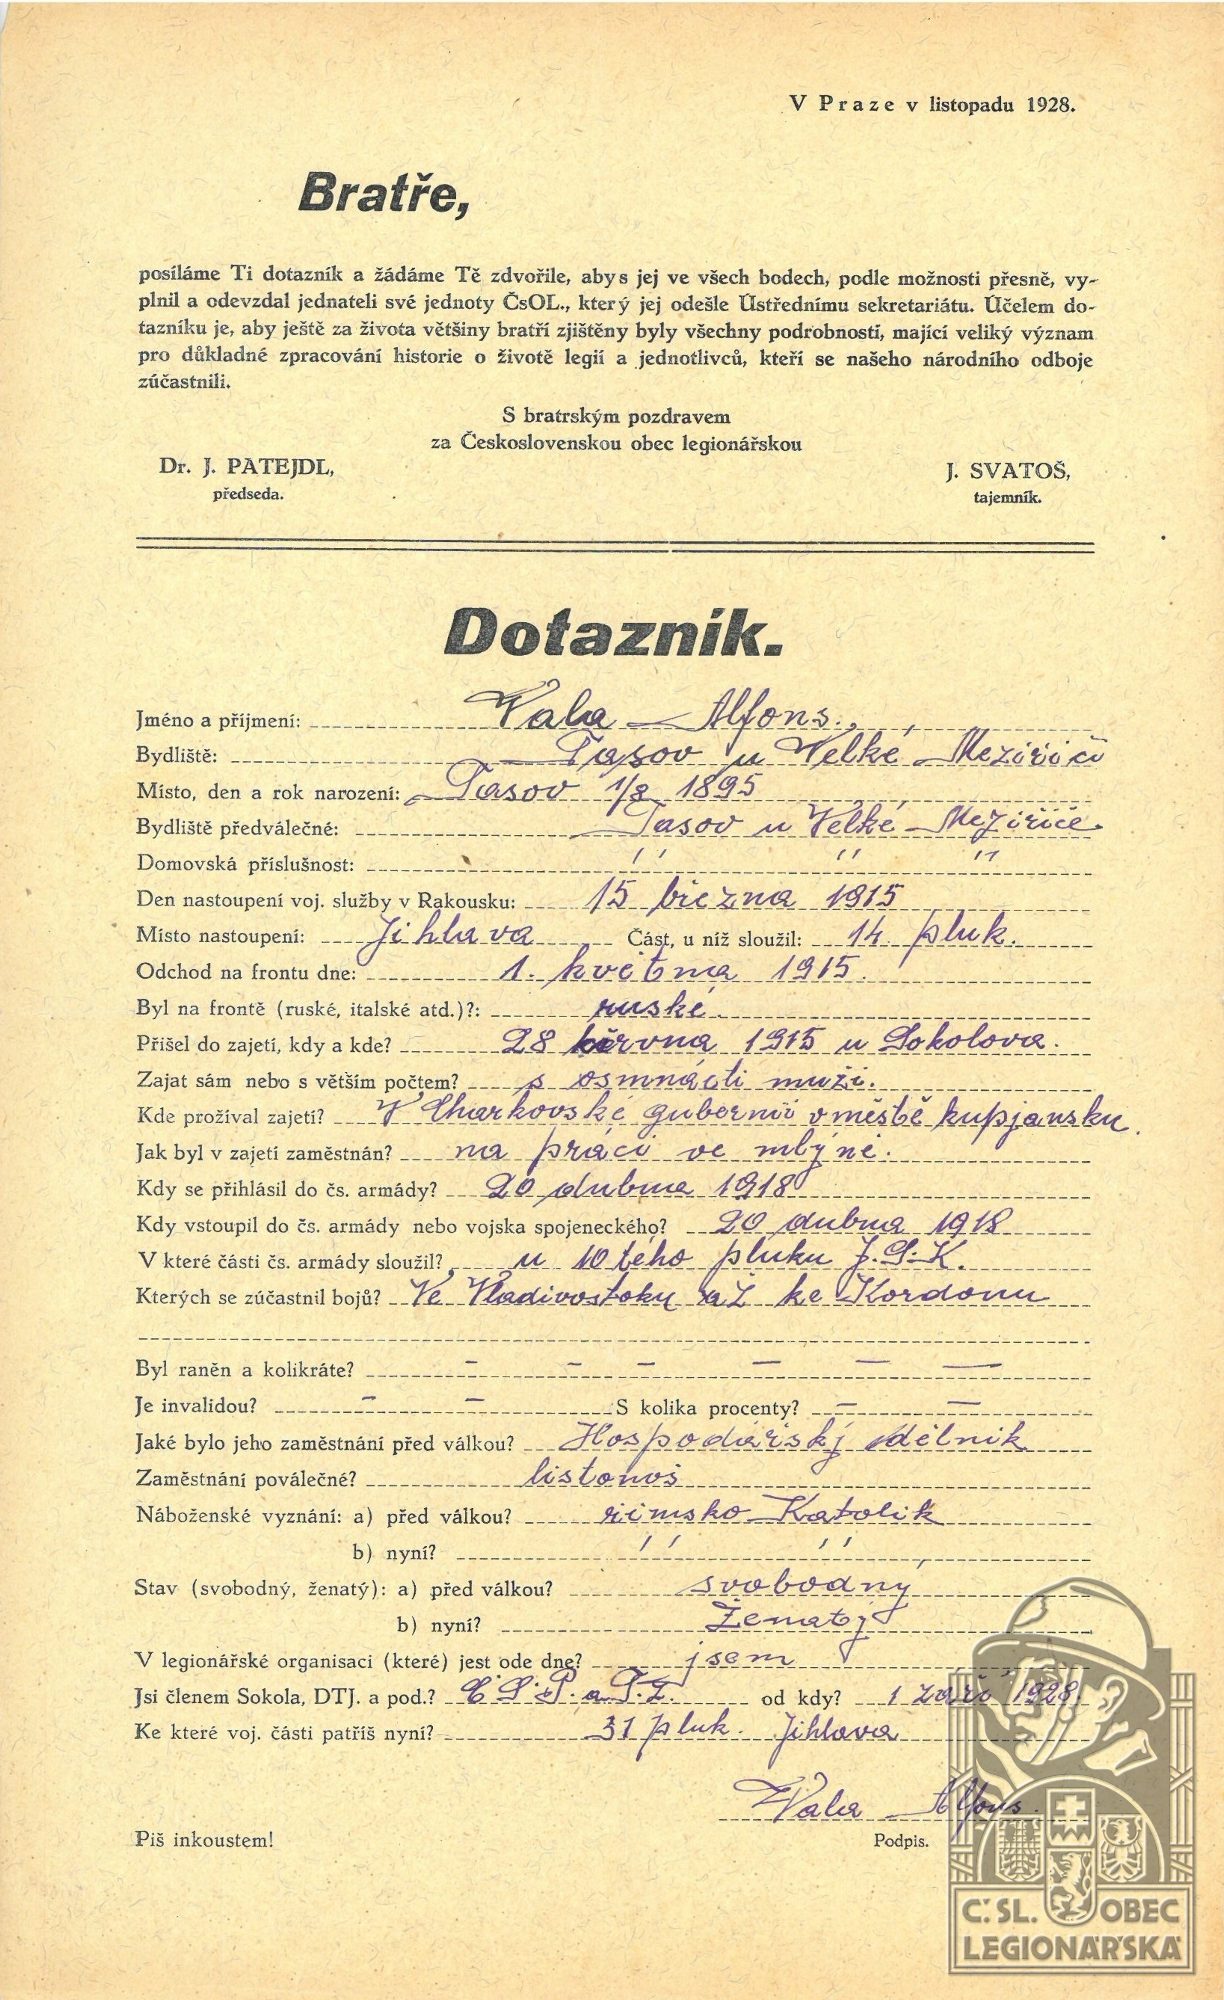 V Praze v listopadu 1928.
Bratře,
posíláme Ti dotazník a žádáme Tě zdvořile, abys jej ve všech bodech, podle možnosti přesně, vy-
plnil a odevzdal jednateli své jednoty ČsOL., který jej odešle Ústřednímu sekretariátu. Účelem do-
tazníku je, aby ještě za života většiny bratří zjištěny byly všechny podrobnosti, mající veliký význam
pro důkladné zpracování historie o životě legií a jednotlivců, kteří se našeho národního odboje
zúčastnili.
S bratrským pozdravem
za Československou obec legionářskou
Dr. J. PATEJDL, J. SVATOŠ,
předseda. tajemník.
Dotazník.
Jméno a příjmení: Vala Alfons.
Bydliště: Tasov u Velké Meziříčí
Místo, den a rok narození: Tasov 1/8 1895
Bydliště předválečné: Tasov u Velké Meziříče
Domovská příslušnost: " " "
Den nastoupení voj. služby v Rakousku: 15 března 1915
Místo nastoupení: Jihlava Část, u níž sloužil: 14 pluk.
Odchod na frontu dne: 1. květma 1915.
Byl na frontě (ruské, italské atd.)?: ruské.
Přišel do zajetí, kdy a kde? 28 června 1915 u Sokolova.
Zajat sám nebo s větším počtem? s osmnácti muži.
Kde prožíval zajetí? V Charkovské gubernii v městě kupjansku.
Jak byl v zajetí zaměstnán? na práci ve mlýně.
Kdy se přihlásil do čs. armády? 20 dubna 1918
Kdy vstoupil do čs. armády nebo vojska spojeneckého? 20 dubna 1918
V které části čs. armády sloužil? u 10 tého pluku J.S.K.
Kterých se zúčastnil bojů? Ve Vladivostoku až ke Kordonu
Byl raněn a kolikráte? – – – – – –
Je invalidou? – – S kolika procenty? – –
Jaké bylo jeho zaměstnání před válkou? Hospodářský dělnik
Zaměstnání poválečné? listonoš
Náboženské vyznání: a) před válkou? římsko Katolík
b) nyní? " "
Stav (svobodný, ženatý): a) před válkou? svobodný
b) nyní? Ženatý
V legionářské organisaci (které) jest ode dne? jsem
Jsi členem Sokola, DTJ. a pod.? od kdy? 1 září 1928.
Ke které voj. části patříš nyní? 31 pluk. Jihlava
Vala Alfons.
Piš inkoustem! Podpis.
Č. SL. OBEC
LEGIONÁŘSKÁ